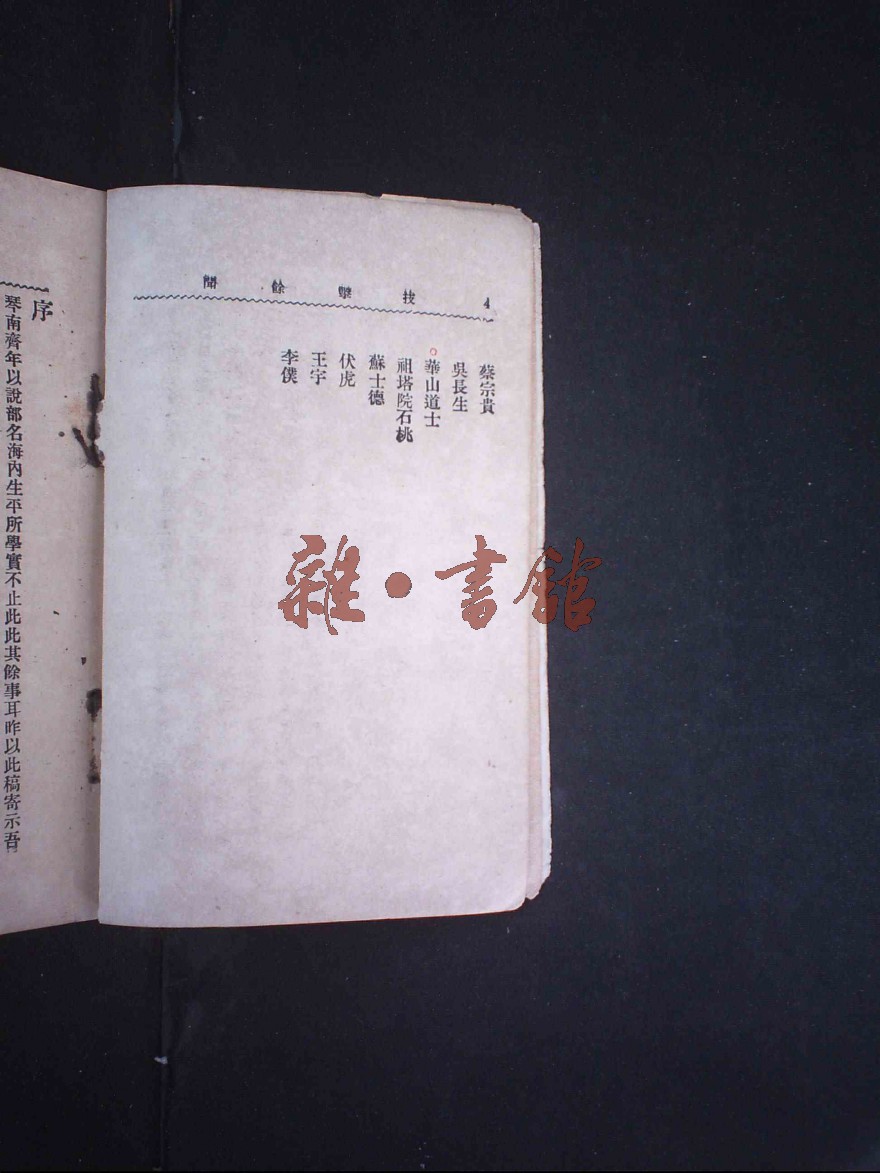 4 技擊餘聞
蔡宗貴
吳長生
華山道士
祖塔院石桃
蘇士德
伏虎
王宇
李僕
序
琴南齊年以說部名海內生平所學實不止此此其餘事耳昨以此稿寄示吾
雜·書館